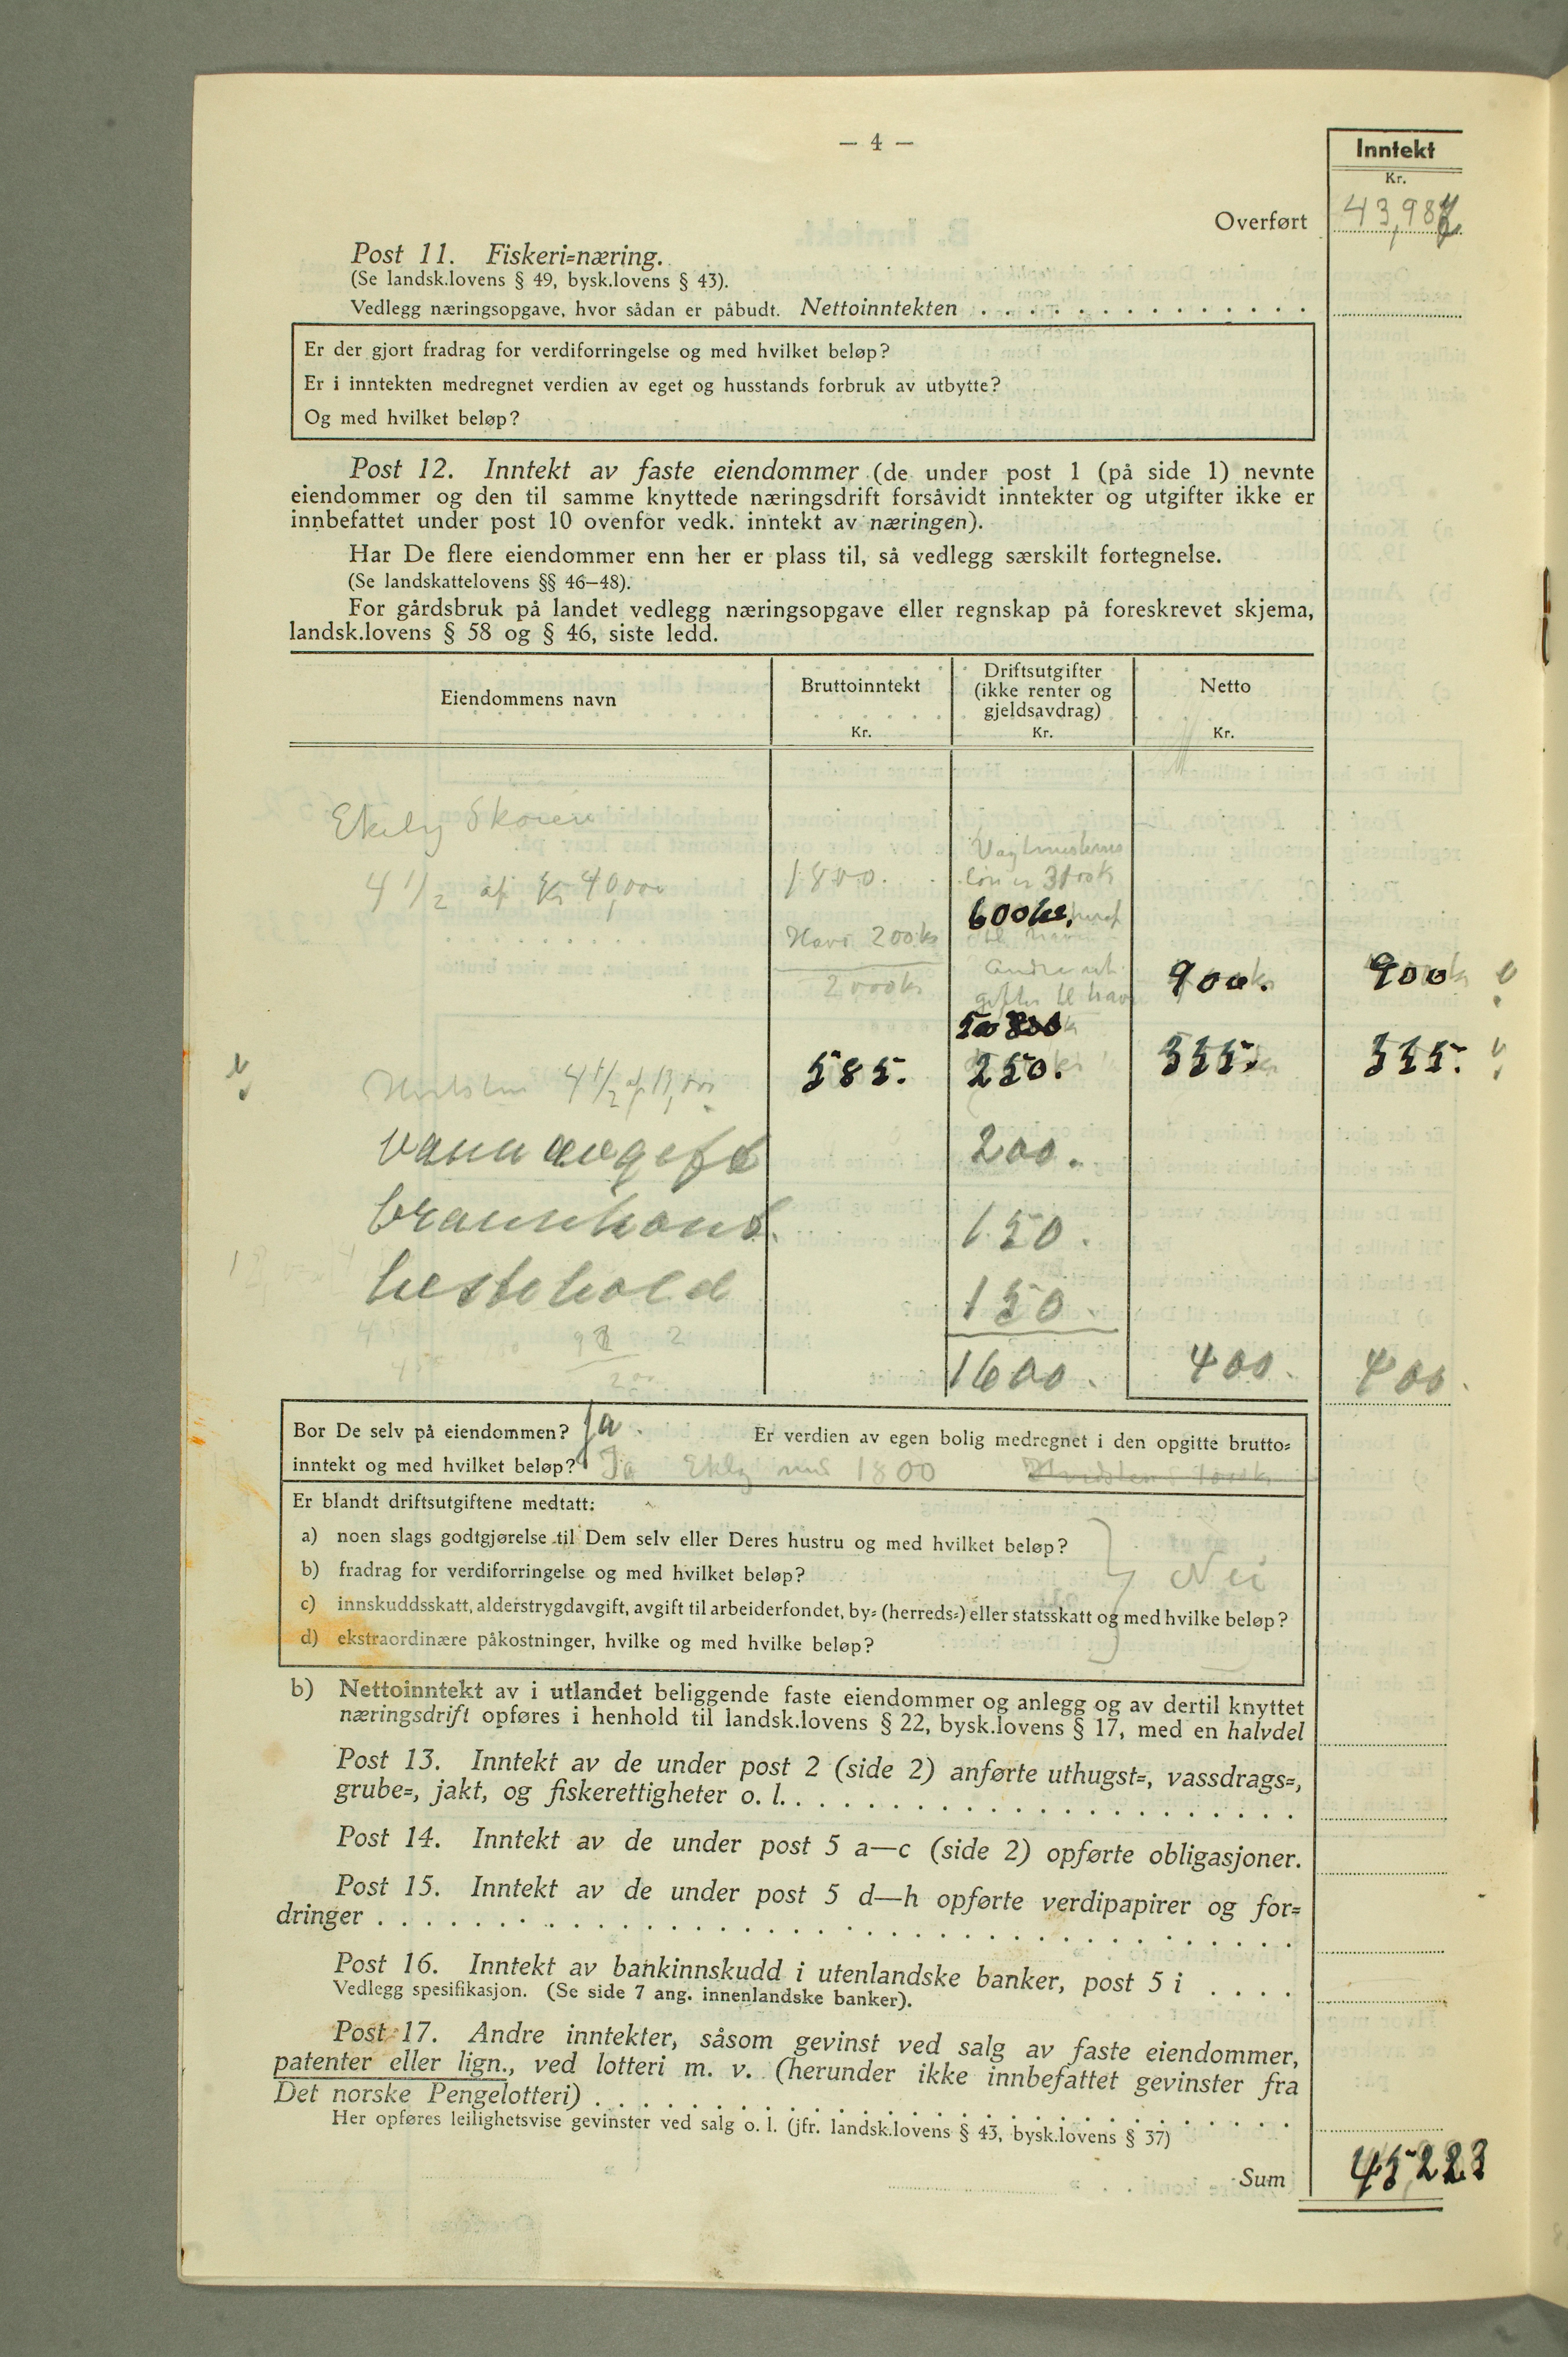 — 4 —
Inntekt
Kr.
Overført 43,987
Post 11. Fiskeri=næring.
(Se landsk.lovens § 49, bysk.lovens § 43).
Vedlegg næringsopgave, hvor sådan er påbudt. Nettoinntekten
Er der gjort fradrag for verdiforringelse og med hvilket beløp?
Er i inntekten medregnet verdien av eget og husstands forbruk av utbytte?
Og med hvilket beløp?
Post 12. Inntekt av faste eiendommer (de under post 1 (på side 1) nevnte
eiendommer og den til samme knyttede næringsdrift forsåvidt inntekter og utgifter ikke er
innbefattet under post 10 ovenfor vedk. inntekt av næringen).
Har De flere eiendommer enn her er plass til, så vedlegg særskilt fortegnelse.
(Se landskattelovens §§ 46—48).
For gårdsbruk på landet vedlegg næringsopgave eller regnskap på foreskrevet skjema,
landsk.lovens § 58 og § 46, siste ledd.
Eiendommens navn
Bruttoinntekt
Kr.
Driftsutgifter
(ikke renter og
gjeldsavdrag)
Kr.
Netto
Kr.
Ekely Skøien
4 1/2 af Kr 40,000 1800.
Vagtmesterens
løn er 3100 kr
600 kr.
Have 200 kr
2000 kr
Andre ut
gifter til have
900. 900
500
Hvitsten 4 1/2 af 13,000 585. 250. 335. 335.
vannavgift 200.
brannkont. 150.
hestehold 150.
1600. 400. 400.
Bor De selv på eiendommen? Ja. Er verdien av egen bolig medregnet i den opgitte brutto=
inntekt og med hvilket beløp? Ja Ekely med 1800
Er blandt driftsutgiftene medtatt:
a) noen slags godtgjørelse til Dem selv eller Deres hustru og med hvilket beløp?
b) fradrag for verdiforringelse og med hvilket beløp? Nei
c) innskuddsskatt, alderstrygdavgift, avgift til arbeiderfondet, by= (herreds=) eller statsskatt og med hvilke beløp?
d) ekstraordinære påkostninger, hvilke og med hvilke beløp?
b) Nettoinntekt av i utlandet beliggende faste eiendommer og anlegg og av dertil knyttet
næringsdrift opføres i henhold til landsk.lovens § 22, bysk.lovens § 17, med en halvdel
Post 13. Inntekt av de under post 2 (side 2) anførte uthugst=, vassdrags=,
grube=, jakt, og fiskerettigheter o. l.
Post 14. Inntekt av de under post 5 a—c (side 2) opførte obligasjoner.
Post 15. Inntekt av de under post 5 d—h opførte verdipapirer og for=
dringer
Post 16. Inntekt av bankinnskudd i utenlandske banker, post 5 i
Vedlegg spesifikasjon. (Se side 7 ang. innenlandske banker).
Post 17. Andre inntekter, såsom gevinst ved salg av faste eiendommer,
patenter eller lign., ved lotteri m. v. (herunder ikke innbefattet gevinster fra
Det norske Pengelotteri)
Her opføres leilighetsvise gevinster ved salg o. l. (jfr. landsk.lovens § 43, bysk.lovens § 37)
Sum 45,223